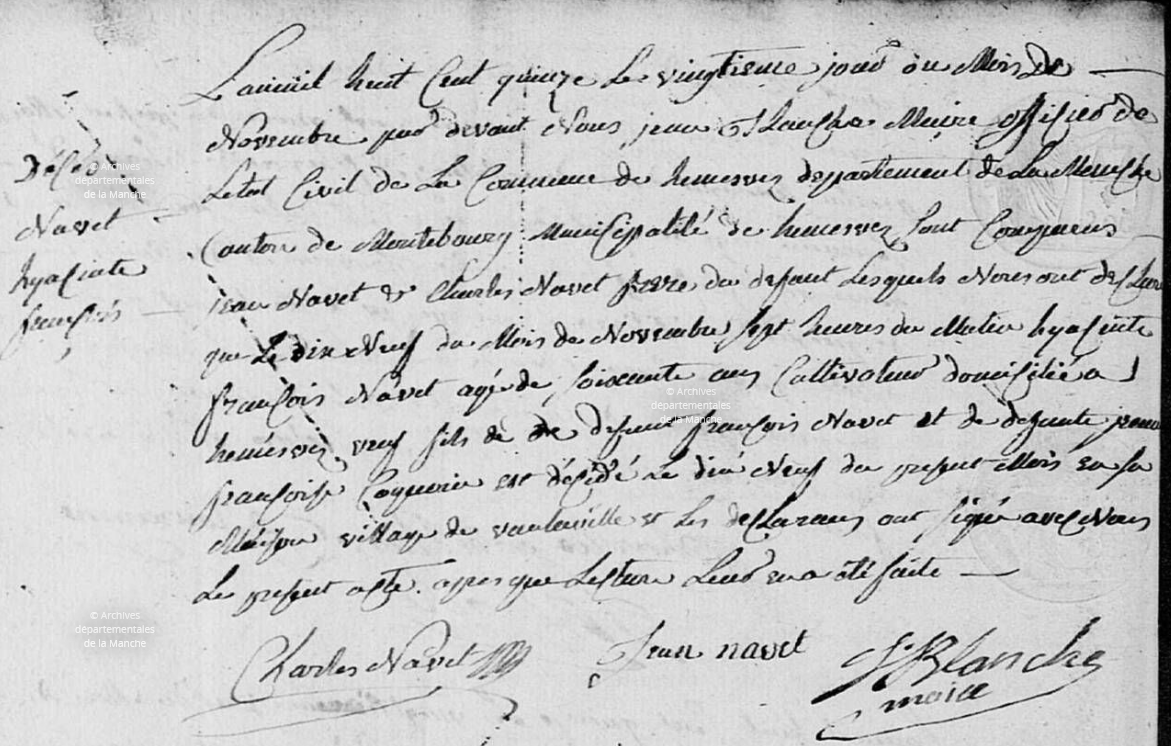 Décès
Navet
hyacinte
françois
Lanmil huit Cent quinze Le vingtieme jour du Mois de
Novembre par devant Nous jean Blanche Maire officier de
Letat Civil de La Commune de hemevez departement de La Manche
Canton de Montebourg Municipalité de hemevez Sont Comparus
jean Navet et Charles Navet frere du defunt Lesquels Nous ont desClaré
que Le dix Neuf du Mois de Novembre sept heures du Matin hyacinte
françois Navet agé de soixante ans Cultivateur domicilié a
hemevez veuf fils de de defunt françois Navet et de defunte
françoise est décédé Le dix Neuf du present Mois en sa
Maison village de et Les desClarans ont signé avec Nous
Le present acte apres que Lecture Leur en a été faite
Charles Navet
Jean navet
J. Blanche
maire
© Archives
départementales
de la Manche
© Archives
départementales
de la Manche
© Archives
départementales
de la Manche